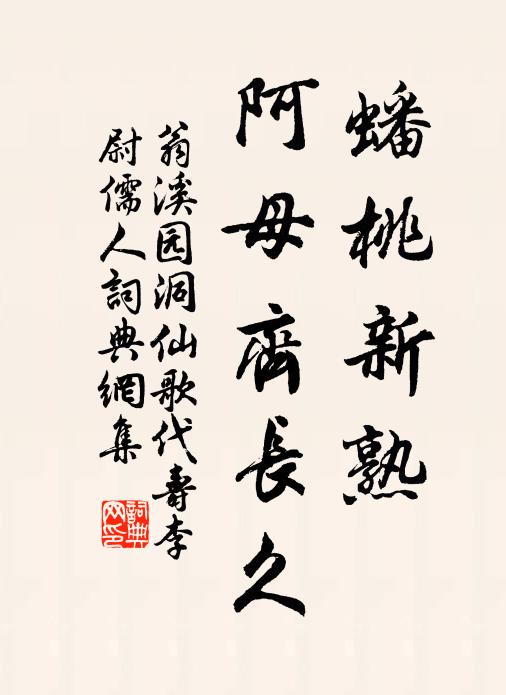 蟠桃新熟
阿母齊長久
翁溪园洞仙歌代壽李
尉儒人詞典網集
詞典
网印